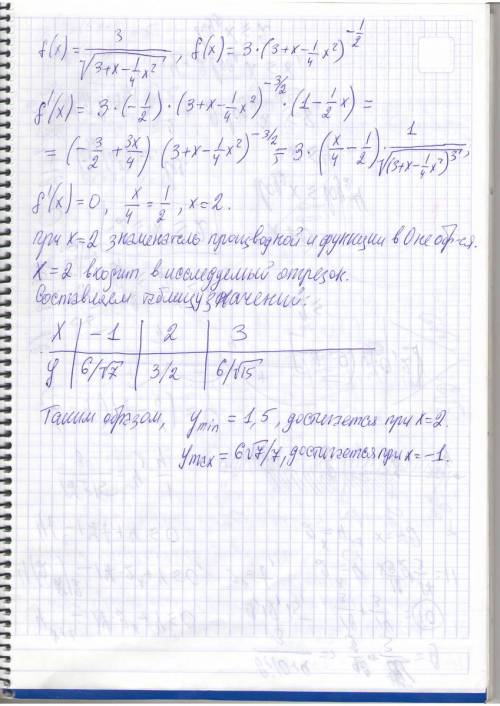 f(x) = 3/√(3+x-1/4x²), f(x) = 3·(3+x-1/4x²)^(-1/2)
f'(x) = 3·(-1/2)·(3+x-1/4x²)^(-3/2)·(1-1/2x) =
= (-3/2 + 3x/4)(3+x-1/4x²)^(-3/2) = 3·(x/4 - 1/2)·1/√((3+x-1/4x²)³),
f'(x) = 0, x/4 = 1/2, x = 2.
при x=2 знаменатель производной и функции в 0 не обр-ся.
x = 2 входит в исследуемый отрезок.
Составляем таблицу значений:
x | -1 | 2 | 3
y | 6/√7 | 3/2 | 6/√15
Таким образом, y min = 1,5, достигается при x=2.
y max = 6√7/7, достигается при x = -1.